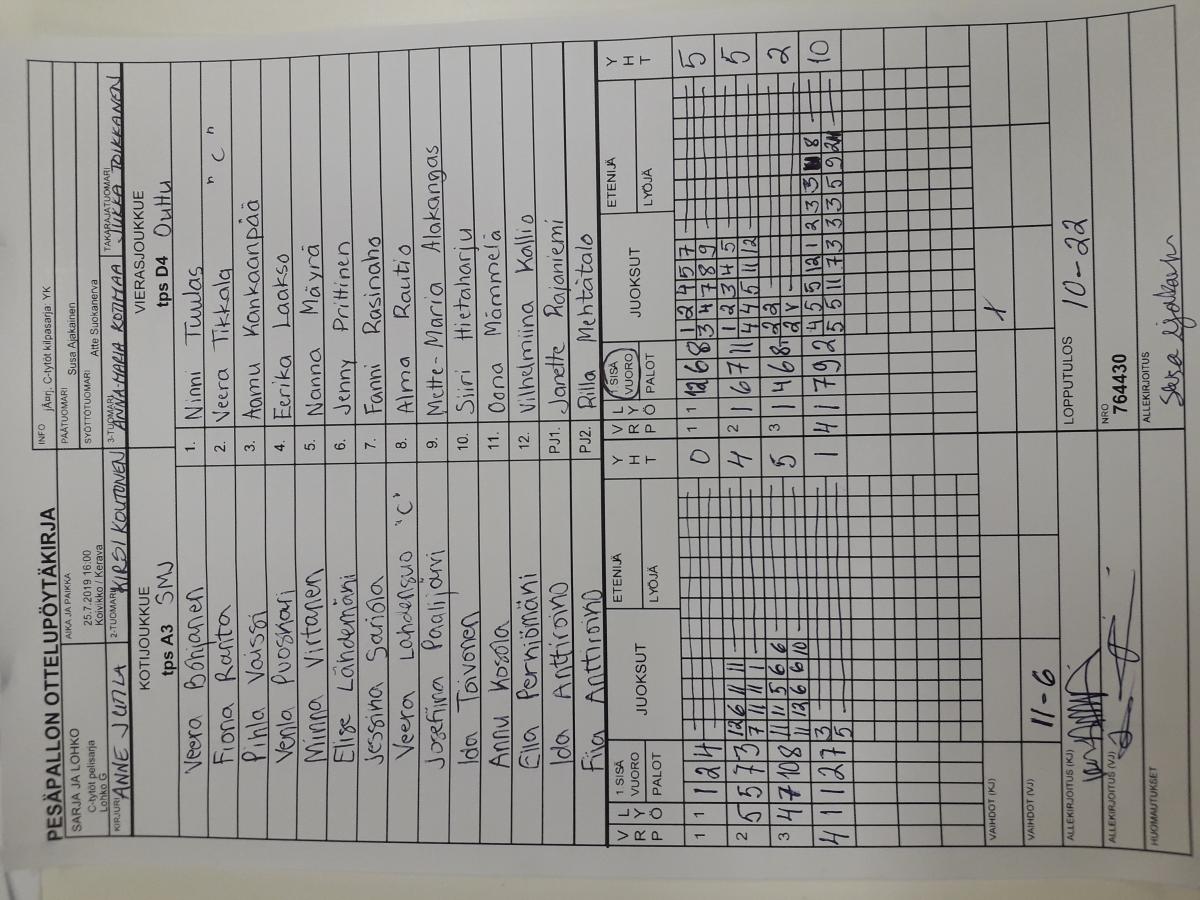 PESÄPALLON OTTELUPÖYTÄKIRJA
SARJA JA LOHKO
C-tytöt pelisarja
Lohko G
AIKA JA PAIKKA
25.7.2019 16:00
Koivikko / Kerava
INFO C-tytöt kilpasarja: YK
PÄÄTUOMARI Susa Ajakainen
SYÖTTÖTUOMARI Atte Suokanerva
KIRJURI ANNE JUTILA
2-TUOMARI KIRSI KOUTONEN
3-TUOMARI ANNA-MARIA KOTIMAA
TAKARAJATUOMARI JUKKA TOIKKANEN
KOTIJOUKKUE
tps A3 SMJ
VIERASJOUKKUE
tps D4 Outtu
Veera Bohjanen 1. Ninni Tuulas
Fiona Ranta 2. Veera Tikkala "C"
Pihla Vaissi 3. Aamu Kankaanpää
Venla Puoskari 4. Eerika Laakso
Minna Virtanen 5. Nanna Mäyrä
Elise Lähdemäni 6. Jenny Prittinen
Jessina Sariola 7. Fanni Rasinaho
Veera Lahdensuo "C" 8. Alma Rautio
Josefiina Paalijärvi 9. Mette-Maria Alakangas
Ida Toivonen 10. Siiri Hietaharju
Annu Kosola 11. Oona Mämmelä
Eila Perniömäni 12. Vilhelmiina Kallio
Ida Anttiroino PJ1. Janette Rajaniemi
Eila Anttiroino PJ2. Rilla Mehtätalo
V L
R Y
P Ö
1 SISÄ
VUORO
PALOT
JUOKSUT
ETENIJÄ
LYÖJÄ
Y
H
T
V L
R Y
P Ö
1 SISÄ
VUORO
PALOT
JUOKSUT
ETENIJÄ
LYÖJÄ
Y
H
T
1 1 1 2 4 0
1 1 12 6 8 1 2 4 5 7 5
3 4 7 8 9
2 5 5 7 3 12 6 11 11 4
7 11 11 1
2 1 6 7 11 1 2 3 4 5 5
4 4 5 11 12
3 4 7 10 8 11 11 5 6 6 5
11 12 6 6 10
3 1 4 6 8 2 2 2
2 V
4 1 1 2 7 3 1
5
4 1 7 9 2 4 5 5 12 1 2 3 3 8 10
5 5 11 7 3 3 5 9 2
VAIHDOT (KJ)
X
VAIHDOT (VJ) 11-6
ALLEKIRJOITUS (KJ)
LOPPUTULOS 10-22
ALLEKIRJOITUS (VJ)
NRO
764430
HUOMAUTUKSET
ALLEKIRJOITUS